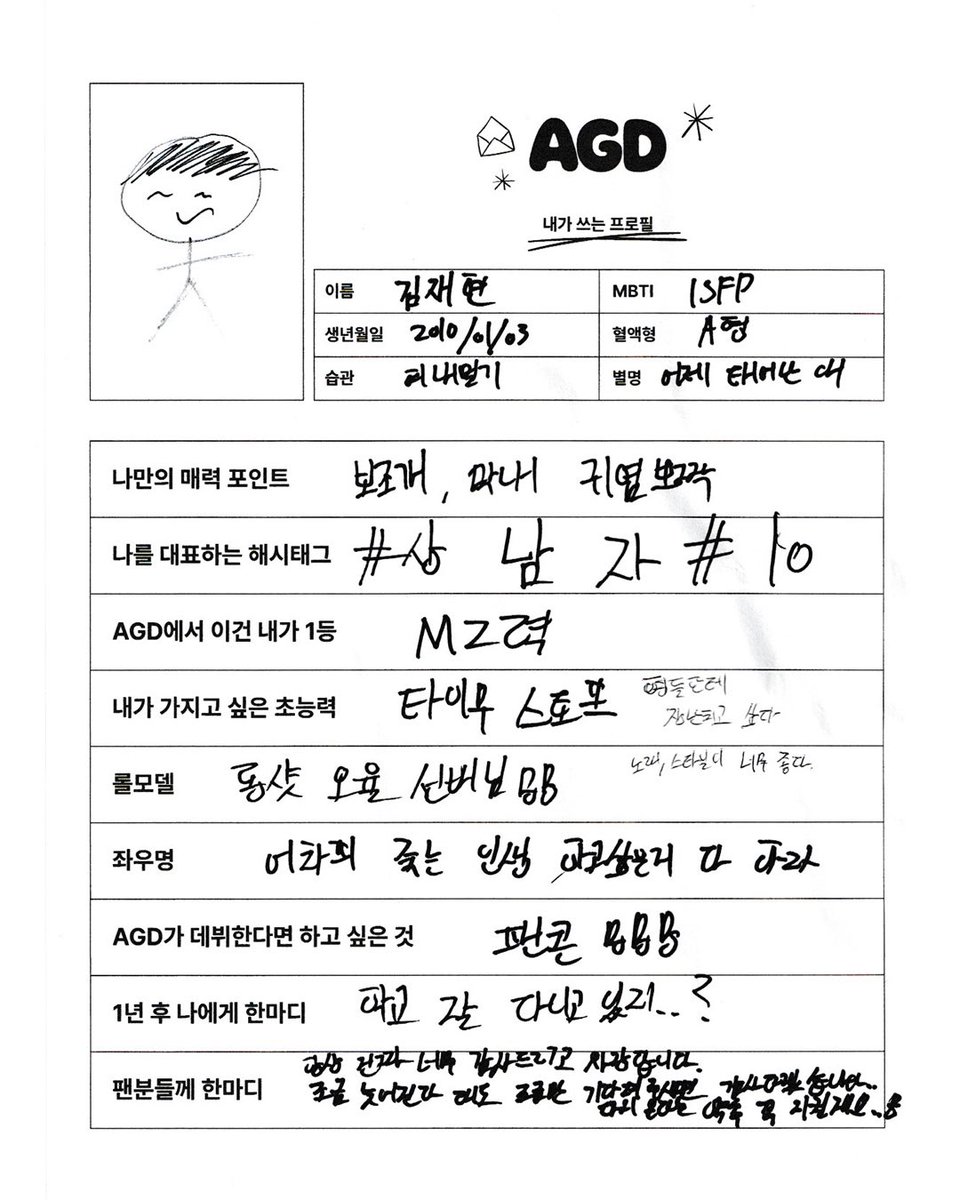 AGD
내가 쓰는 프로필
이름 김재현
MBTI ISFP
생년월일 2010/01/03
혈액형 A형
습관 피내밀기
별명 어제 태어난 애
나만의 매력 포인트 보조개, 막내 귀염뽀짝
나를 대표하는 해시태그 #상 남 자 #10
AGD에서 이건 내가 1등 MZ력
내가 가지고 싶은 초능력 타이무 스토프
형들한테
장난치고 싶다
롤모델 롱샷 오율 선배님
노래, 스타일이 너무 좋다.
좌우명 어차피 늦는 인생 하고싶은거 다 하라
AGD가 데뷔한다면 하고 싶은 것 팬콘
1년 후 나에게 한마디 학교 잘 다니고 있지..?
팬분들께 한마디 항상 진짜 너무 감사드리고 사랑합니다.
조금 늦어진다 해도 조금만 기다려주시면 감사하겠습니다..
약속 꼭 지킬게요..